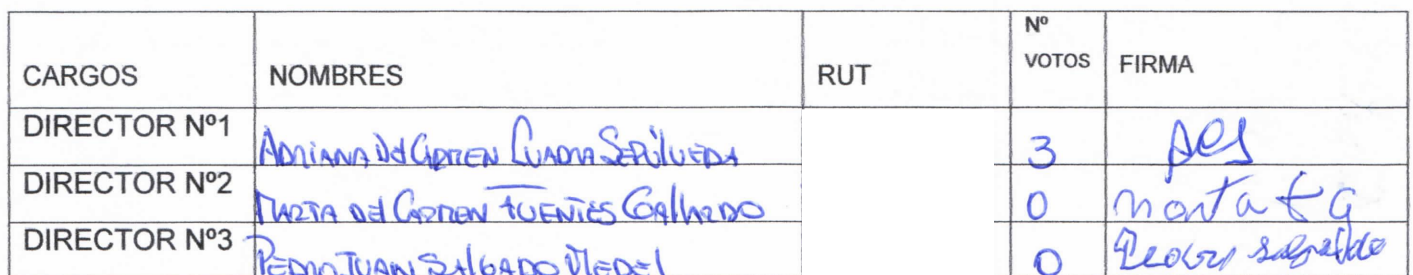 CARGOS NOMBRES RUT Nº VOTOS FIRMA
DIRECTOR Nº1 ADRIANA Del CARMEN CUADRA SEPÚLVEDA 3 ACS
DIRECTOR Nº2 MARTA Del CARMEN FUENTES GALLARDO 0 marta f G
DIRECTOR Nº3 PEDRO JUAN SALGADO 0 Pedro salgado